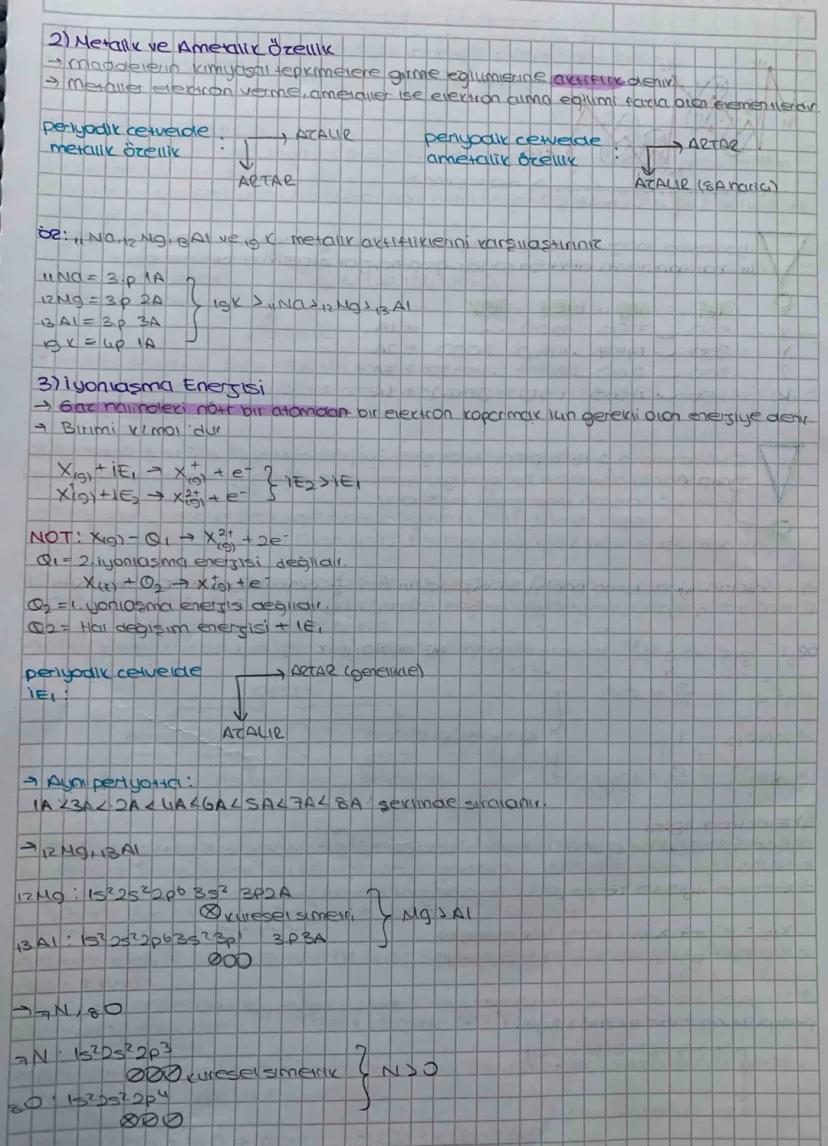 2) Metalik ve Ametalik Özellik
→ maddelerin kimyasal tepkimelere girme eğilimlerine aktiflik denir.
→ metaller elektron verme, ametaller ise elektron alma eğilimi fazla olan elementlerdir.
periyodik cetvelde metalik özellik : → AZALIR
↓ ARTAR
periyodik cetvelde ametalik özellik : → ARTAR
↓ AZALIR (8A hariç)
ÖR: ₁₁Na, ₁₂Mg, ₁₃Al ve ₁₉K metalik aktifliklerini karşılaştırınız.
₁₁Na = 3.p 1A
₁₂Mg = 3p 2A
₁₃Al = 3.p 3A
₁₉K = 4p 1A
} ₁₉K > ₁₁Na > ₁₂Mg > ₁₃Al
3) iyonlaşma Enerjisi
→ Gaz halindeki nötr bir atomdan bir elektron koparmak için gerekli olan enerjiye denir.
→ Birimi kj/mol'dür
X(g) + iE₁ → X⁺(g) + e⁻
X⁺(g) + IE₂ → X²⁺(g) + e⁻
} IE₂ > IE₁
NOT: X(g) – Q₁ → X²⁺(g) + 2e⁻
Q₁ = 2. iyonlaşma enerjisi değildir.
X(k) + Q₂ → X⁺(g) + e⁻
Q₂ = 1. iyonlaşma enerjisi değildir.
Q2 = Hal değişim enerjisi + IE₁
periyodik cetvelde
iE₁ : → ARTAR (genellikle)
↓ AZALIR
→ Aynı periyotta:
1A < 3A < 2A < 4A < 6A < 5A < 7A < 8A şeklinde sıralanır.
→ ₁₂Mg, ₁₃Al
₁₂Mg : 1s² 2s² 2p⁶ 3s² 3p 2A
⊗ küresel simetri
₁₃Al : 1s² 2s² 2p⁶ 3s² 3p¹ 3.p 3A
} Mg > Al
→ ₇N, ₈O
₇N : 1s² 2s² 2p³
küresel simetrik
₈O : 1s² 2s² 2p⁴
} N > O